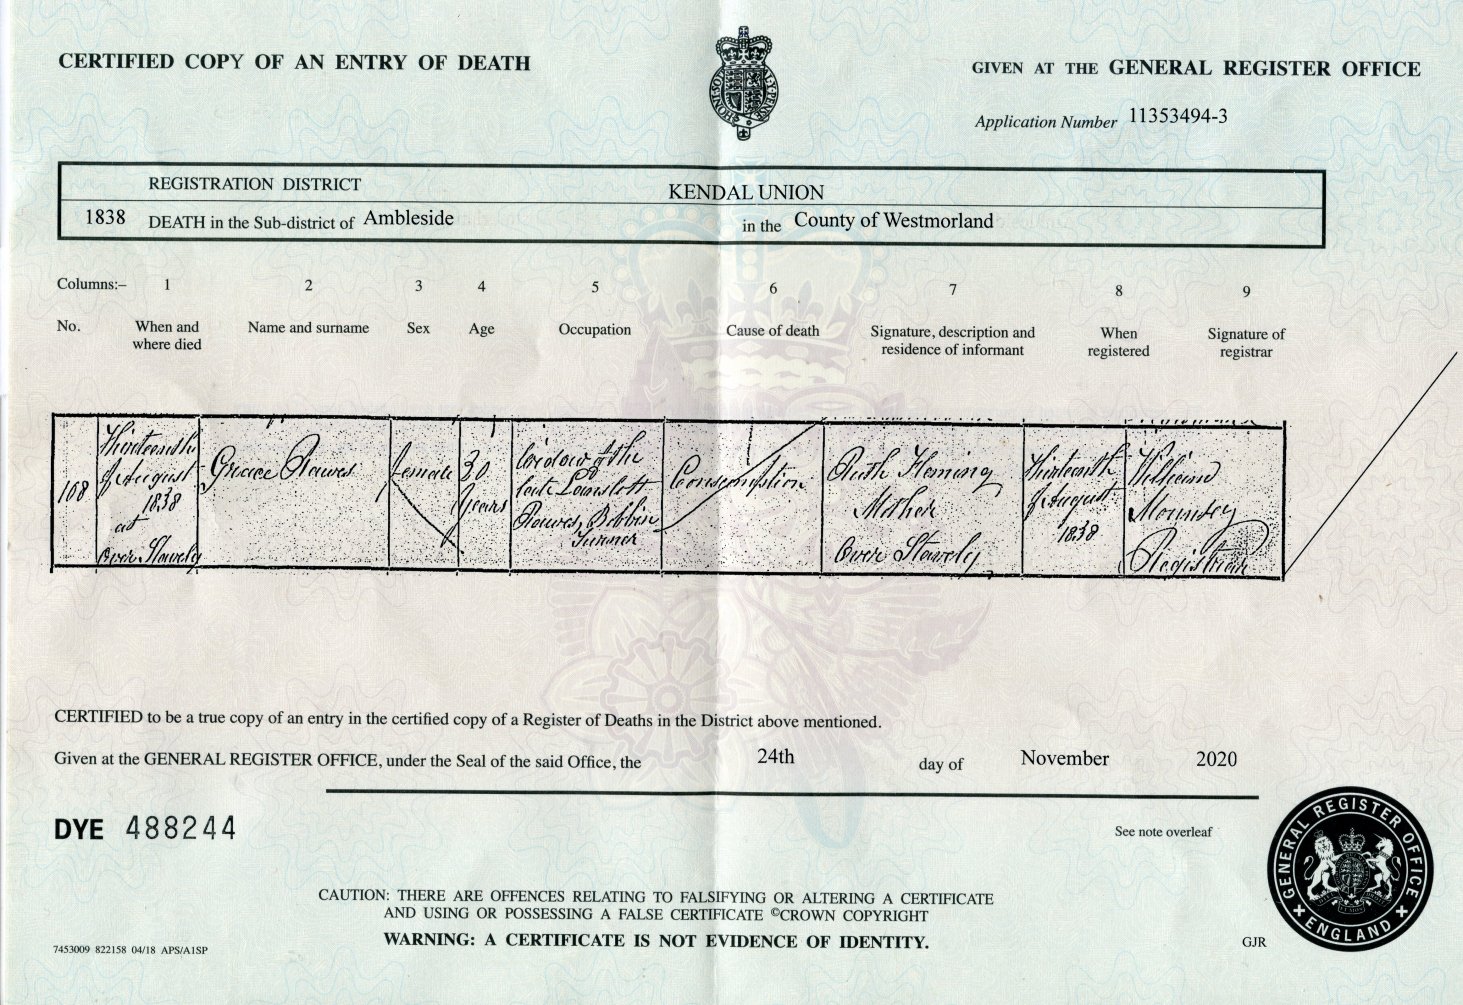 CERTIFIED COPY OF AN ENTRY OF DEATH
GIVEN AT THE GENERAL REGISTER OFFICE
Application Number 11353494-3
REGISTRATION DISTRICT KENDAL UNION
1838 DEATH in the Sub-district of Ambleside in the County of Westmorland
Columns:– 1 2 3 4 5 6 7 8 9
No. When and where died Name and surname Sex Age Occupation Cause of death Signature, description and residence of informant When registered Signature of registrar
108
Thirteenth
of August
1838
at
Over Staveley
Grace Rawes
female
30
years
Widow of the
late Lancelott
Rawes, Bobbin
Turner
Consumption
Ruth Fleming
Mother
Over Stavely
Thirteenth
of August
1838
William
Mounsey
Registrar
CERTIFIED to be a true copy of an entry in the certified copy of a Register of Deaths in the District above mentioned.
Given at the GENERAL REGISTER OFFICE, under the Seal of the said Office, the 24th day of November 2020
DYE 488244
See note overleaf
CAUTION: THERE ARE OFFENCES RELATING TO FALSIFYING OR ALTERING A CERTIFICATE
AND USING OR POSSESSING A FALSE CERTIFICATE ©CROWN COPYRIGHT
WARNING: A CERTIFICATE IS NOT EVIDENCE OF IDENTITY.
7453009 822158 04/18 APS/A1SP
GJR
GENERAL REGISTER OFFICE
ENGLAND